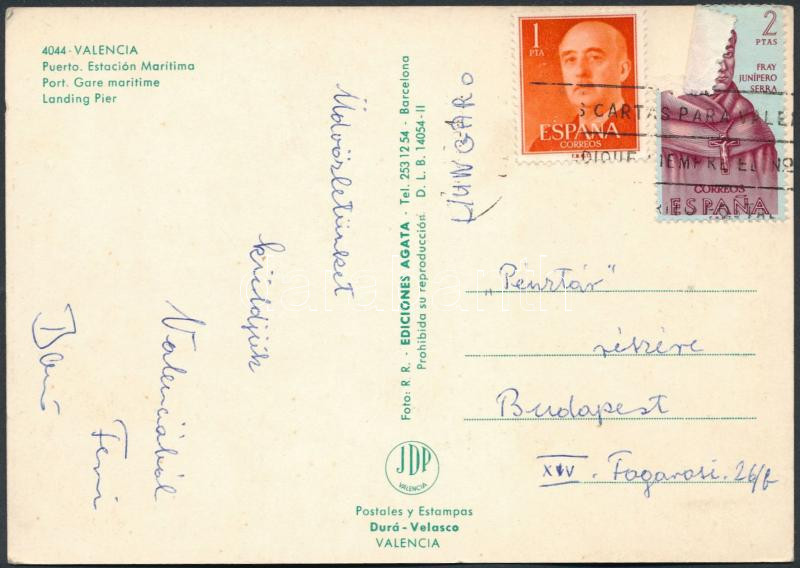 4044 - VALENCIA
Puerto. Estación Marítima
Port. Gare maritime
Landing Pier
Üdvözletünket
küldjük
Valenciából
Feri
Foto: R. R. - EDICIONES AGATA - Tel. 253 12 54 - Barcelona
Prohibida su reproducción. D. L. B. 14054-II
HUNGARO
1
PTA
ESPAÑA
CORREOS
2
PTAS
FRAY
JUNÍPERO
SERRA
CORREOS
ESPAÑA
S CARTAS PARA VALE
DIQUE SIEMPRE EL Nº
„Pénztár"
részére
Budapest
XIV. Fogarasi. 26/b
JDP
VALENCIA
Postales y Estampas
Durá - Velasco
VALENCIA